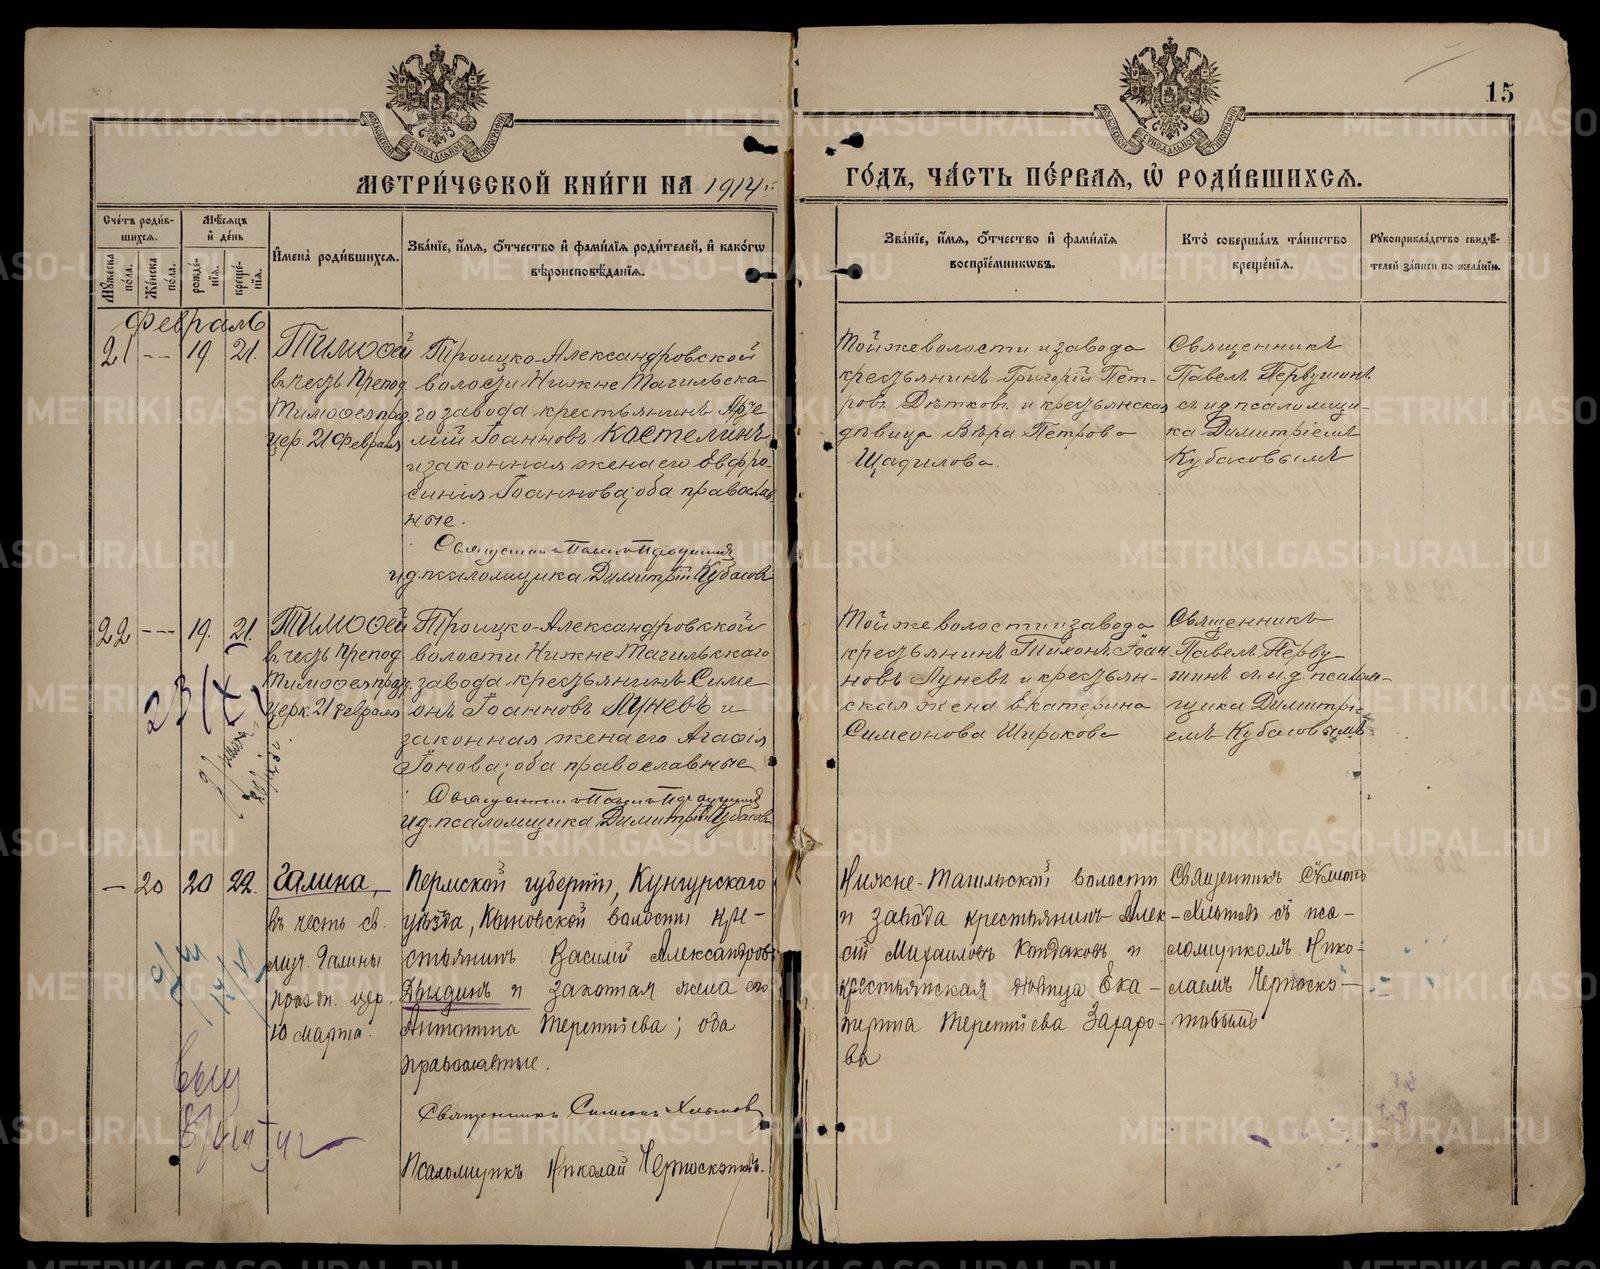 15
МЕТРИ́ЧЕСКОЙ КНИ́ГИ НА 1914 г.
ГО́ДЪ, ЧА́СТЬ ПЕ́РВАЯ, Ѡ҆ РОДИ́ВШИХСЯ.
Сче́тъ роди́в-
шихся.
Мѣ́сяцъ
и҆ де́нь
Мꙋ́жеска по́ла.
Же́нска по́ла.
рожде́-
нїя.
креще́-
нїя.
И҆мена̀ роди́вшихся.
Зва́нїе, и҆́мя, ѻ҆́тчество и҆ фами́лїя роди́телей, и҆ како́гѡ
вѣроисповѣ́данїя.
Зва́нїе, и҆́мя, ѻ҆́тчество и҆ фами́лїя
воспрїе́мникѡвъ.
Кто̀ соверша́лъ та́инство
креще́нїя.
Рꙋкоприкла́дство свидѣ́-
телей за́писи по жела́нїю.
Февраль
21 -- 19 21.
Тимоѳей
в честь Препод
Тимоѳея праз.
цер. 21 февраля
Троицко-Александровской
волости Нижне Тагильска
го завода крестьянинъ Арте
мій Іоанновъ Костелинъ
и законная жена его Евфро-
синія Іоаннова; оба православ
ные.
Священникъ Павелъ Первушинъ
и д. псаломщика Димитрій Кубасовъ
Той же волости и завода
крестьянинъ Григорій Пет-
ровъ Дѣтковъ и крестьянская
дѣвица Вѣра Петрова
Щадилова.
Священникъ
Павелъ Первушинъ
съ и д псаломщи-
ка Димитріемъ
Кубасовымъ
22 --- 19. 21.
Тимоѳей
въ честь Препод
Тимоѳея празд.
церк. 21 февраля
Троицко-Александровской
волости Нижне Тагильскаго
завода крестьянинъ Симе
онъ Іоанновъ Луневъ и
законная жена его Агаѳія
Іонова; оба православные
Священникъ Павелъ Первушинъ
и д. псаломщика Димитрій Кубасовъ
Той же волости и завода
крестьянинъ Тихонъ Іоан
новъ Луневъ и крестьян-
ская жена Екатерина
Симеонова Широкова
Священникъ
Павелъ Перву-
шинъ съ и д псалом-
щика Димитрі-
емъ Кубасовымъ
— 20 20 22.
Галина,
въ честь св.
муч. Галины
праздн. цер.
10 марта.
Пермской губерніи, Кунгурскаго
уѣзда, Кыновской волости кре-
стьянинъ Василій Александровъ
Дылдинъ и законная жена его
Антонина Терентіева; оба
православные.
Священникъ Симеонъ Хлыновъ
Псаломщикъ Николай Черноскутовъ.
Нижне-Тагильской волости
и завода крестьянинъ Алек-
сій Михаиловъ Кондаковъ и
крестьянская дѣвица Ека-
терина Терентіева Захаро-
ва
Священникъ Симеонъ
Хлыновъ съ пса-
ломщикомъ Нико-
лаемъ Черноску-
товымъ